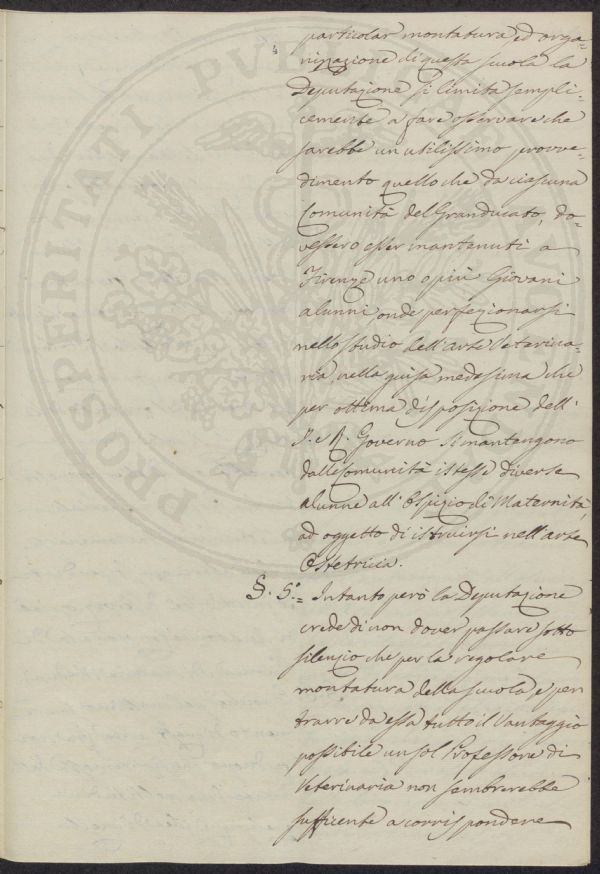 particolar montatura ed orga=
nizzazione di questa scuola la
Deputazione si limita sempli=
cemente a fare osservare che
sarebbe un utilissimo provve=
dimento quello che da ciascuna
Comunità del Granducato, do=
vessero esser mantenuti a
Firenze uno o più Giovani
alunni onde perfezionarsi
nello studio dell'arte Veterina=
ria, nella guisa medesima che
per ottima disposizione dell'
I. e R. Governo si mantengono
dalle Comunità istesse diverse
alunne all'Ospizio di Maternità,
ad oggetto di istruirsi nell'arte
Ostetricia.
§. 5.° = Intanto però la Deputazione
crede di non dover passare sotto
silenzio che per la regolare
montatura della scuola, e per
trarre da essa tutto il vantaggio
possibile un sol Professore di
Veterinaria non sembrerebbe
sufficente a corrispondere
PROSPERITATI PUBL